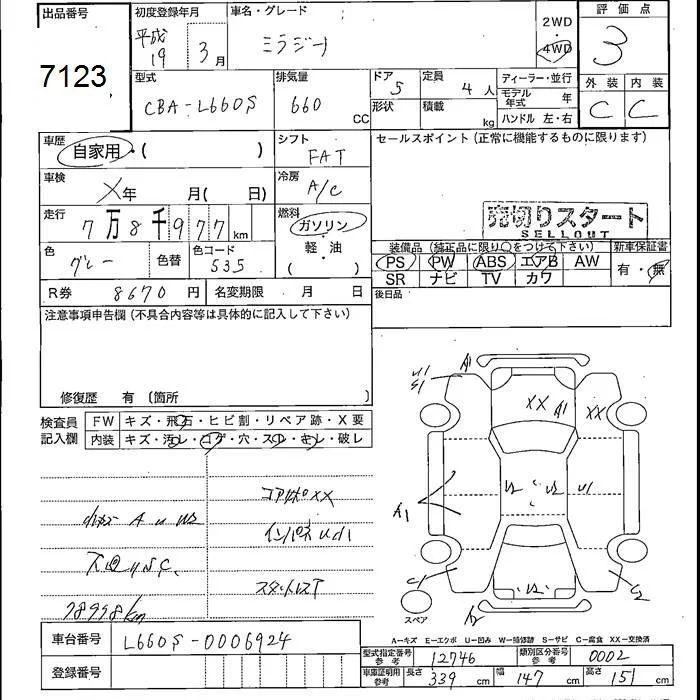 出品番号
7123
初度登録年月
平成 19 3月
車名・グレード
ミラジーノ
2WD
・
4WD
評価点
3
外装 内装
C C
型式
CBA-L660S
排気量
660 CC
ドア 5
形状
定員 4人
積載 kg
ディーラー・並行
モデル年式 年
ハンドル 左・右
車歴
自家用・( )
シフト
FAT
セールスポイント(正常に機能するものに限ります)
車検
X年 月( 日)
冷房
A/C
走行
7万8千977km
燃料
ガソリン
・
軽・油
( )
売切りスタート
SELLOUT
色
グレー
色替
色コード
S35
装備品(純正品に限り○をつけて下さい)
新車保証書
PS PW ABS エアB AW
SR ナビ TV カワ
有・無
R券 8670円
名変期限 月 日
後日品
注意事項申告欄(不具合内容等は具体的に記入して下さい)
修復歴 有 〔箇所 〕
検査員
記入欄
FW キズ・飛石・ヒビ割・リペア跡・X要
内装 キズ・汚レ・コゲ・穴・スレ・キレ・破レ
コアサポXX
A U W2
インパネ
スタットレスT
78998km
U1
S1
A1
XX A1 XX
U2 U2 U1
A1
C1
U2
C2
A2
スペア
A－キズ E－エクボ U－凹み W－補修跡 S－サビ C－腐食 XX－交換済
車台番号 L660S-0006924
登録番号
型式指定番号 参考 12746
類別区分番号 参考 0002
車庫証明用 参考 長さ 339 cm 幅 147 cm 高さ 151 cm